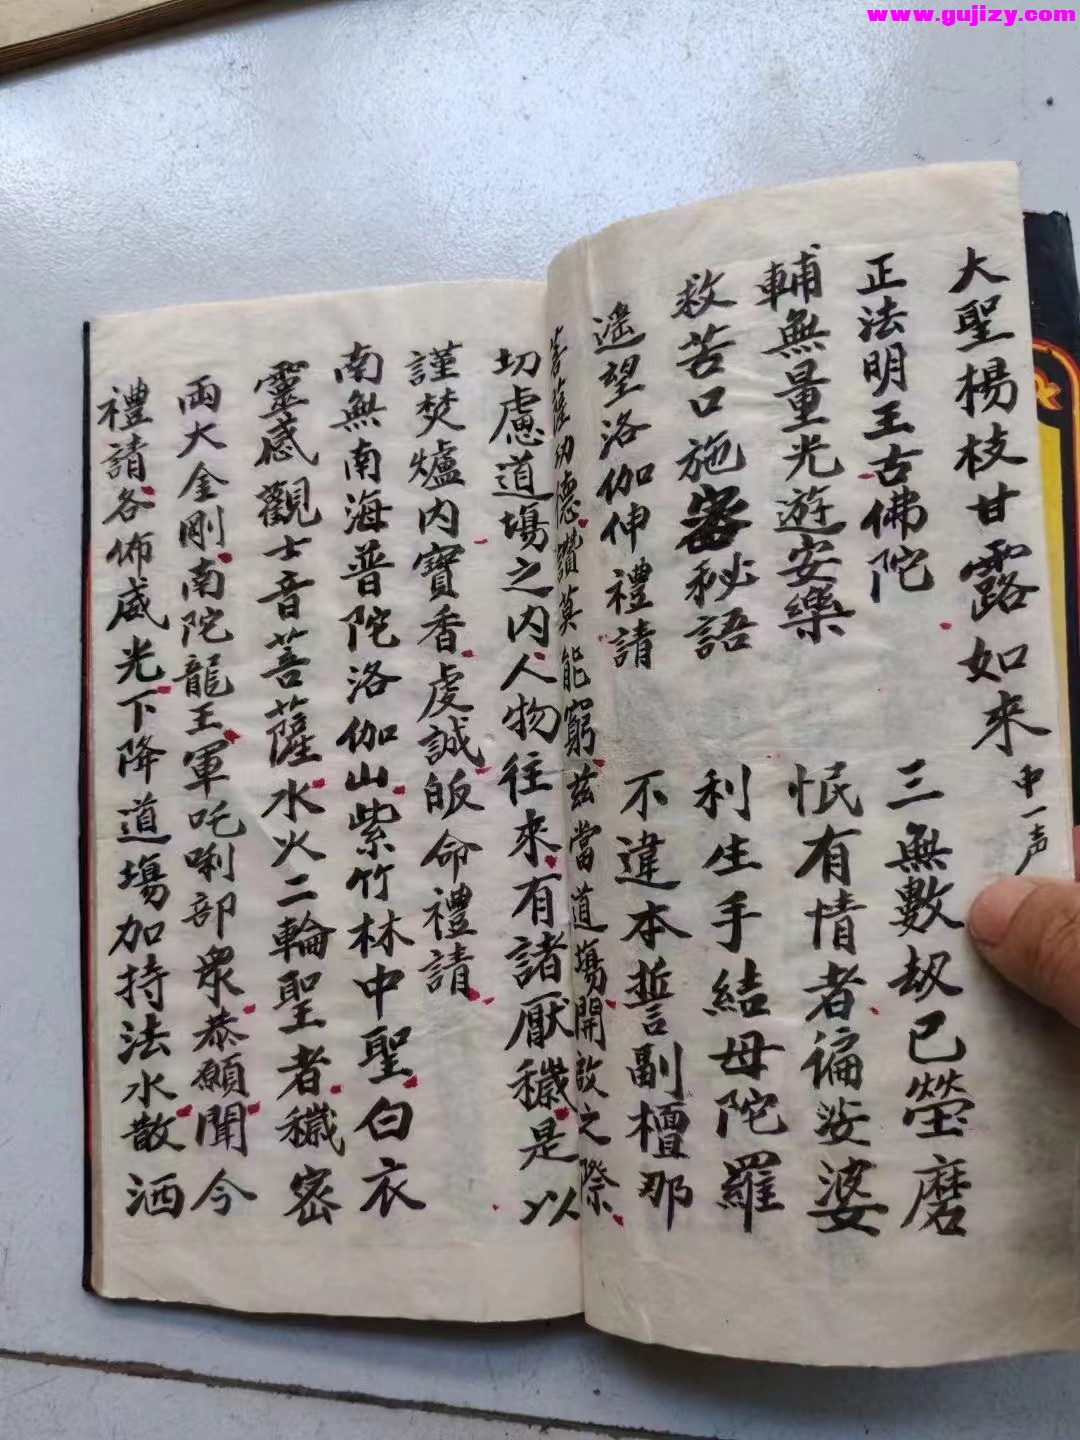 www.gujizy.com
大聖楊枝甘露如來 中一声
正法明王古佛陀 三無數劫已瑩磨
輔無量光遊安樂 愍有情者徧娑婆
救苦口施密秘語 利生手結母陀羅
遙望洛伽伸禮請 不違本誓副檀那
菩薩功德讚莫能窮茲當道塲開啟之際
切慮道塲之内人物往來有諸厭穢是以
謹焚爐内寶香虔誠皈命禮請
南無南海普陀洛伽山紫竹林中聖白衣
靈感觀士音菩薩水火二輪聖者穢密
兩大金剛南陀龍王軍吒唎部衆恭願聞今
禮請各佈威光下降道塲加持法水散洒